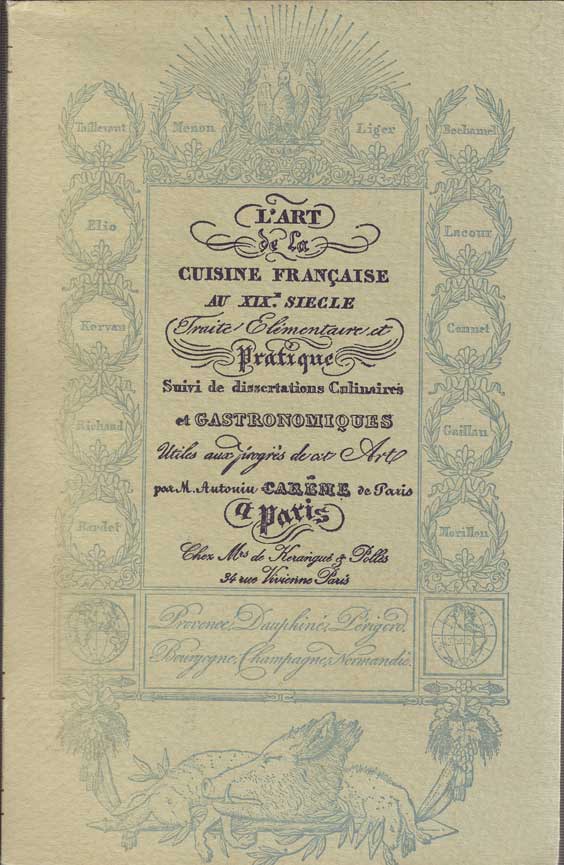 Taillevant Menon Liger Bechamel
Elio Lacour
Kervan Connet
Richaud Gaillau
Bardet Morillon
L'ART
de La
CUISINE FRANÇAISE
AU XIX.E SIECLE
Traité Elémentaire et
Pratique
Suivi de dissertations Culinaires
et GASTRONOMIQUES
Utiles aux progrès de cet Art
par M. Antonin CARÊME de Paris
a Paris
Chez Mrs de Kerangué & Pollés
34 rue Vivienne Paris
Provence, Dauphiné, Périgord.
Bourgogne, Champagne, Normandie.